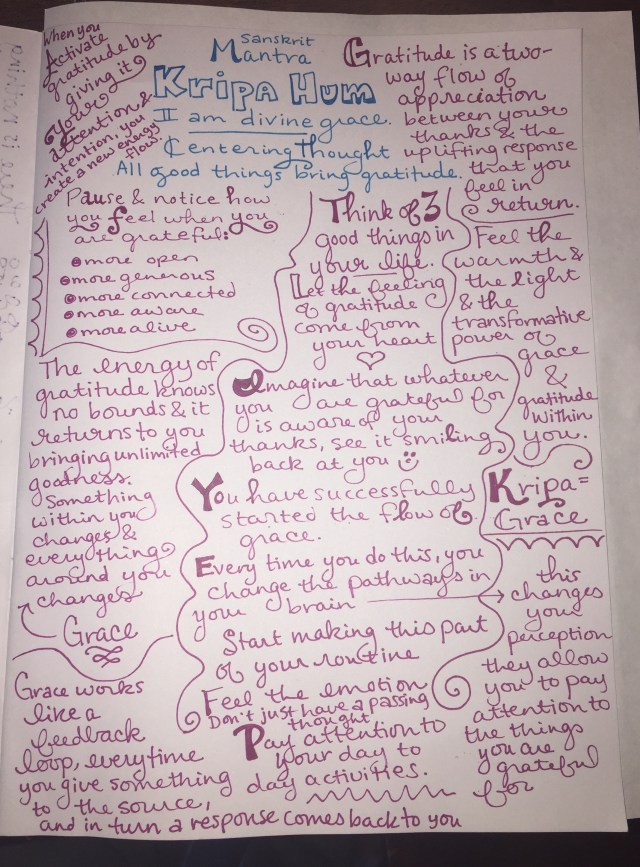 When you
Activate
gratitude by
giving it
your
attention &
intention, you
create a new energy
flow.
Sanskrit
Mantra
Kripa Hum
I am divine grace.
Centering Thought
All good things bring gratitude.
Gratitude is a two-
way flow of
appreciation
between your
thanks & the
uplifting response
that you
feel in
return.
Pause & notice how
you feel when you
are grateful:
more open
more generous
more connected
more aware
more alive
Think of 3
good things in
your life.
Let the feeling
of gratitude
come from
your heart
Feel the
warmth &
the light
& the
transformative
power of
grace
&
gratitude
within
you.
The energy of
gratitude knows
no bounds & it
returns to you
bringing unlimited
goodness.
Something
within you
changes &
everything
around you
changes
Grace
Imagine that whatever
you are grateful for
is aware of your
thanks, see it smiling
back at you
You have successfully
started the flow of
grace.
Kripa =
Grace
Every time you do this, you
change the pathways in
your brain
this
changes
your
perception
they allow
you to pay
attention to
the things
you are
grateful
for
Start making this part
of your routine
Feel the emotion
Don't just have a passing
thought
Pay attention to
your day to
day activities.
Grace works
like a
feedback
loop, everytime
you give something
to the source,
and in turn a response comes back to you